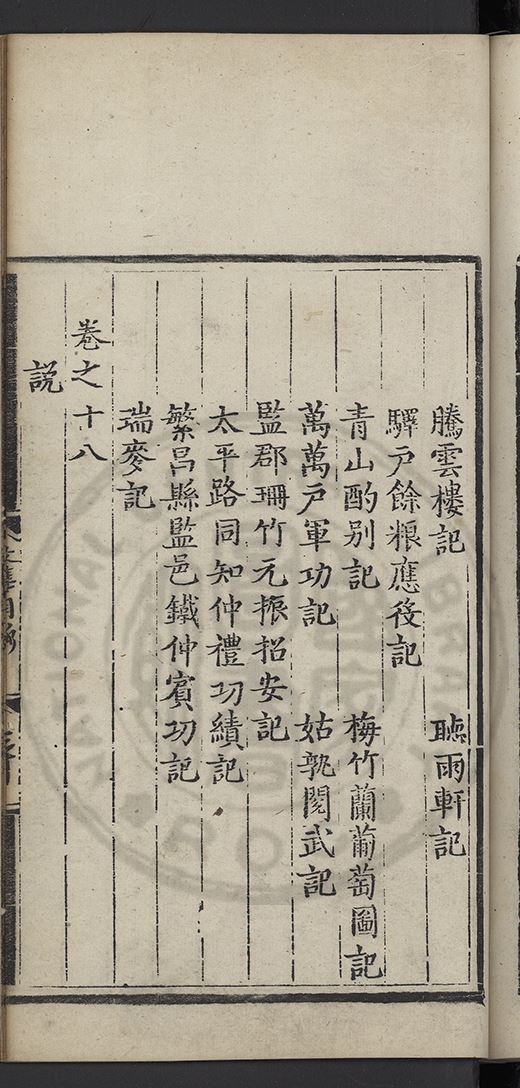 騰雲樓記　聽雨軒記
驛戶餘粮應役記
青山酌别記　梅竹蘭葡萄圖記
萬萬戶軍功記　姑孰閱武記
監郡珊竹元振招安記
太平路同知仲禮功績記
繁昌縣監邑鐵仲賓功記
瑞麥記
卷之十八
説